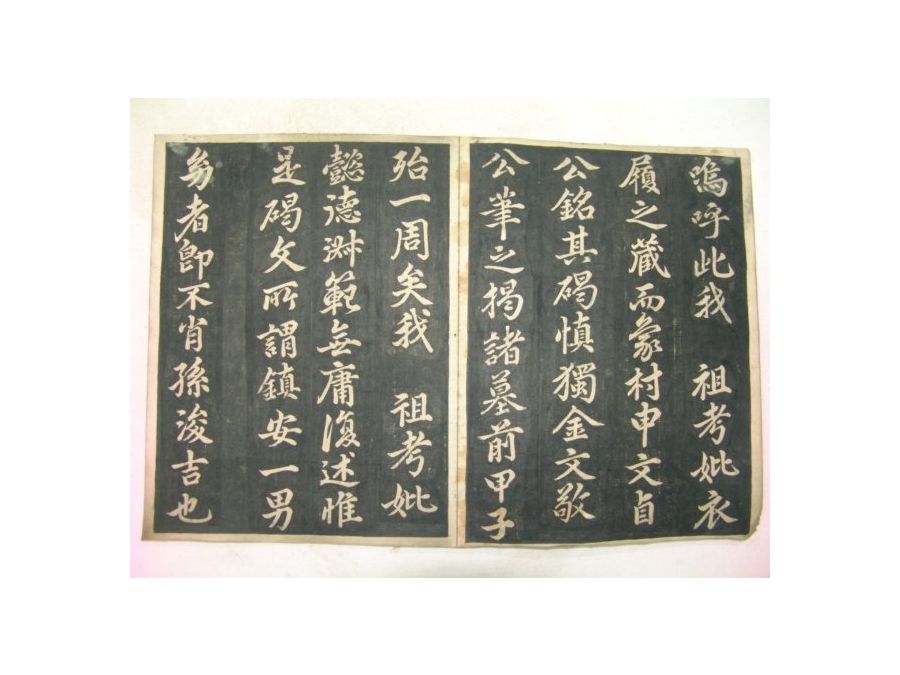 嗚呼此我 祖考妣衣
履之藏而象村申文貞
公銘其碣愼獨金文敬
公筆之揭諸墓前甲子
殆一周矣我 祖考妣
懿德淑範無庸復述惟
是碣文所謂鎭安一男
名者卽不肖孫浚吉也